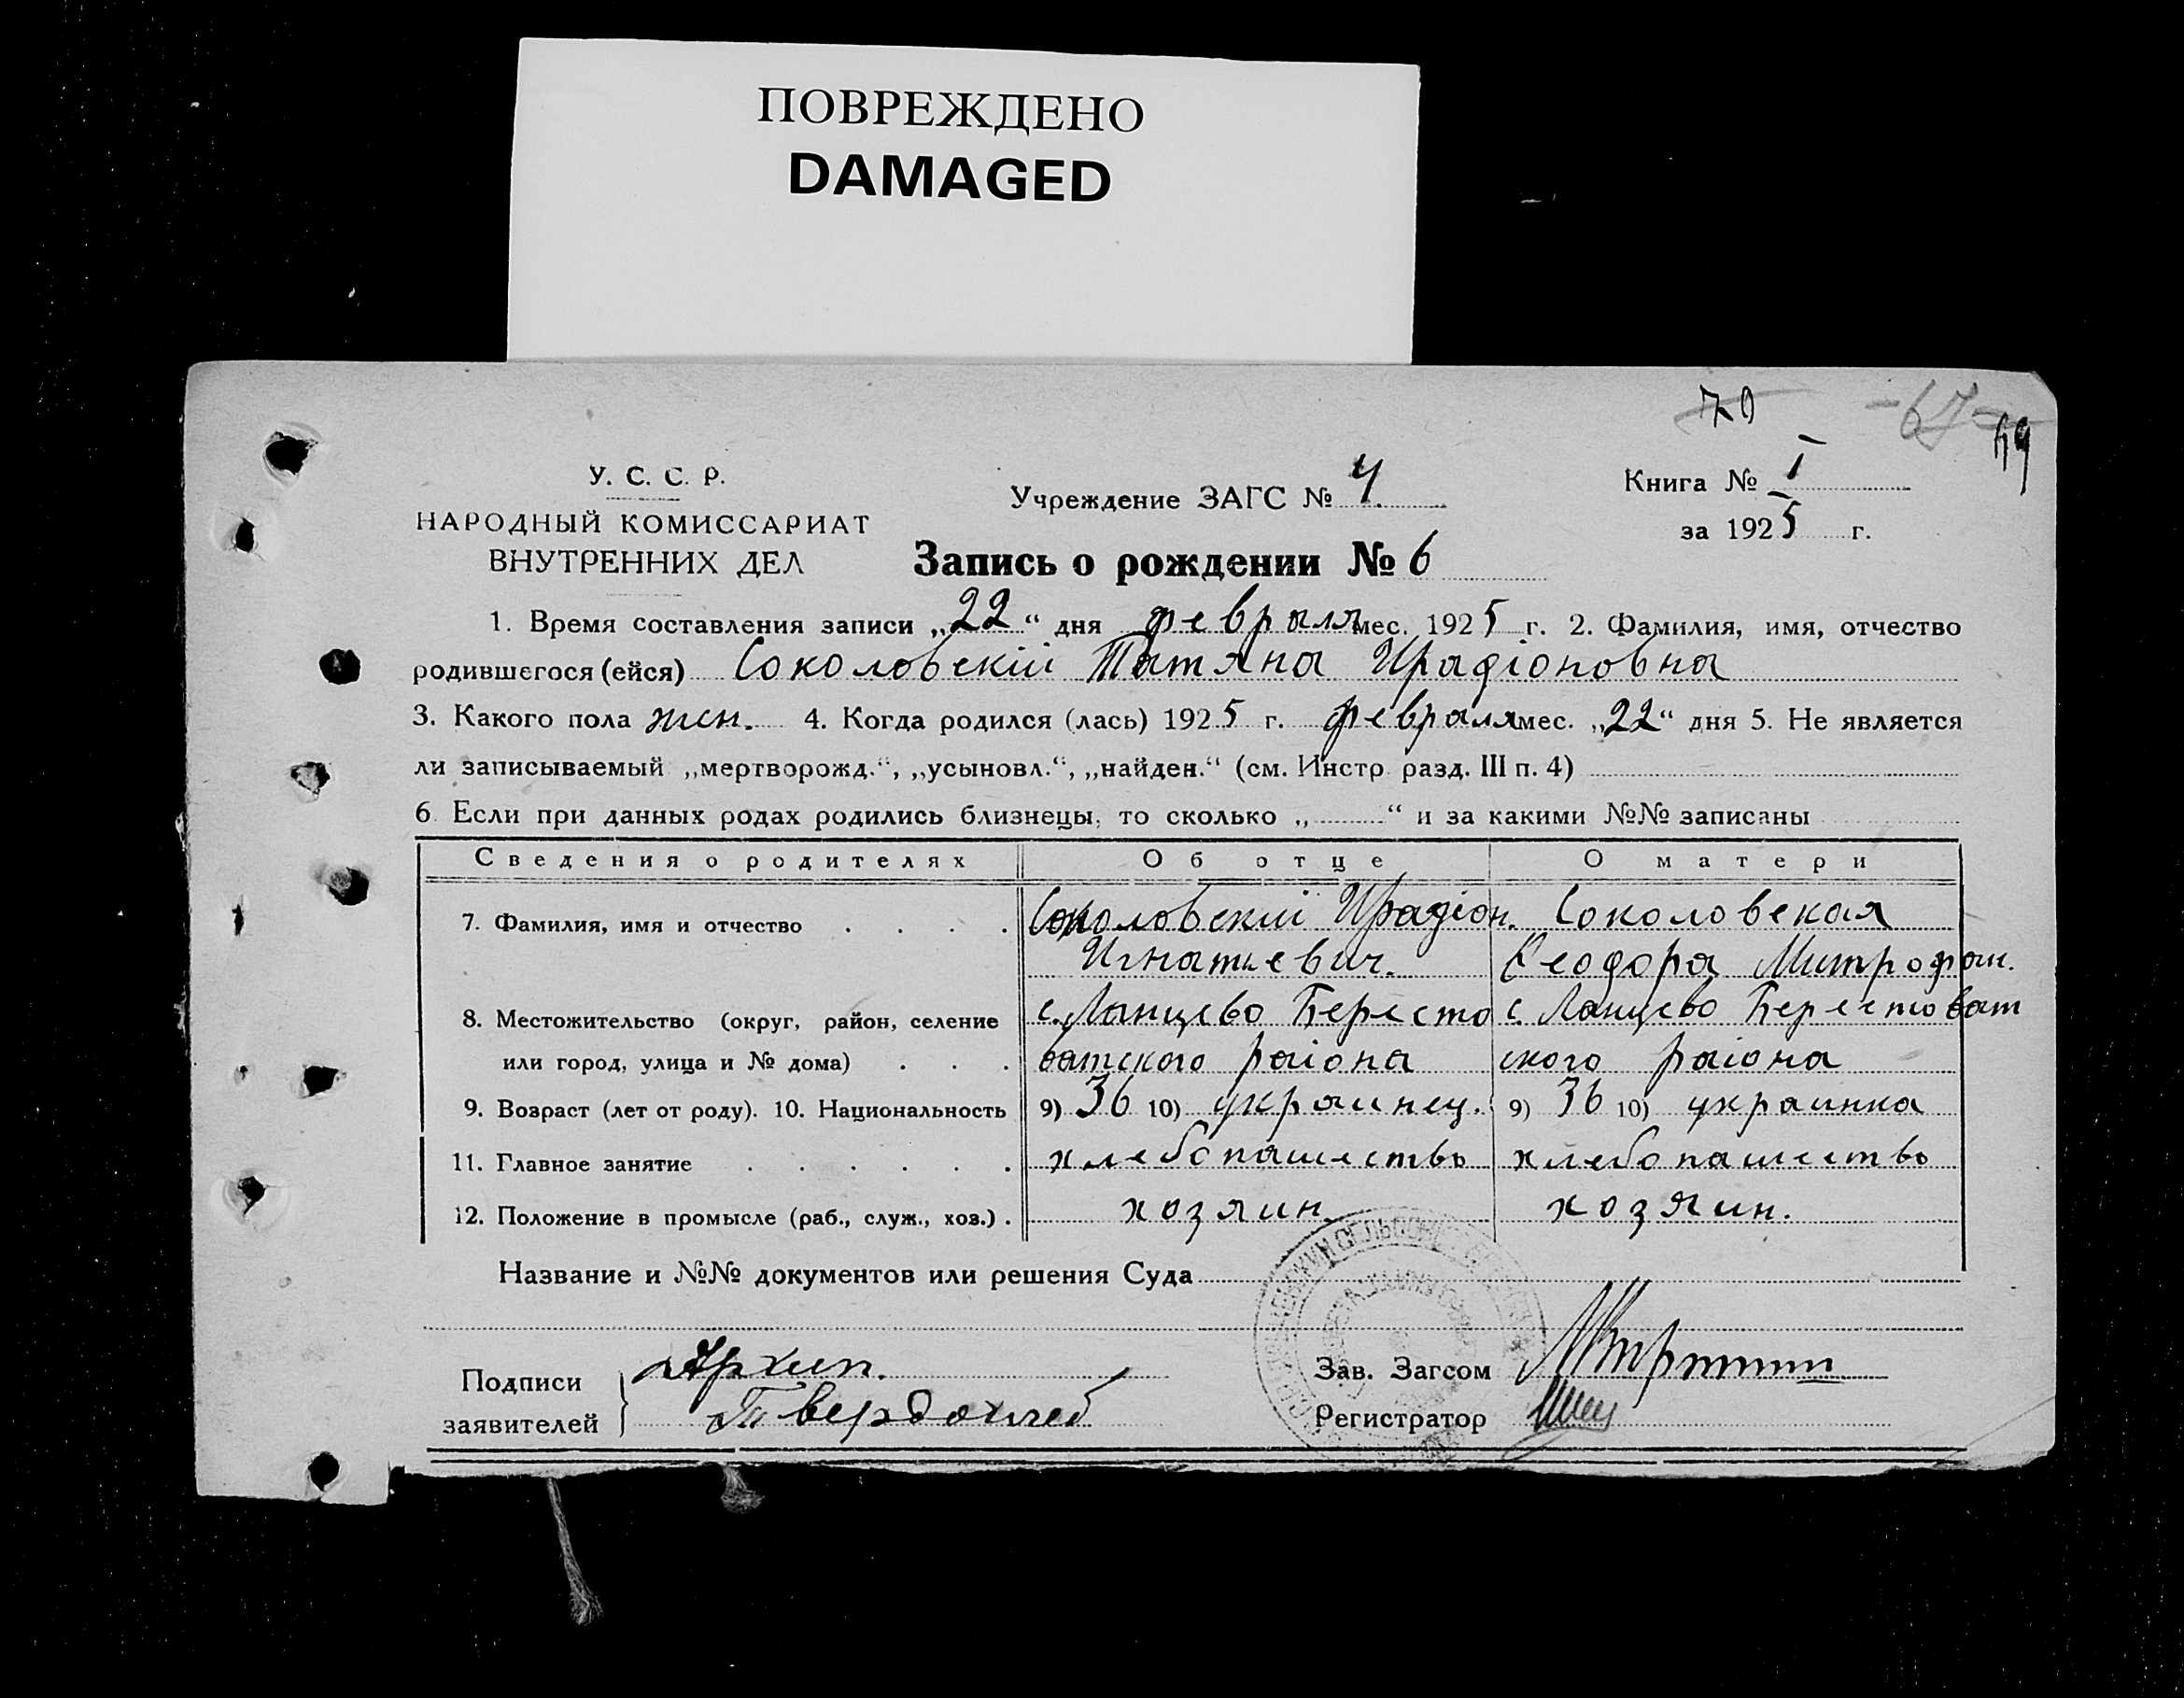 ПОВРЕЖДЕНО
DAMAGED
70
-67-
69
У. С. С. Р.
НАРОДНЫЙ КОМИССАРИАТ
ВНУТРЕННИХ ДЕЛ
Учреждение ЗАГС № 4
Книга № I
за 1925 г.
Запись о рождении № 6
1. Время составления записи „22“ дня февраля мес. 1925 г. 2. Фамилия, имя, отчество
родившегося (ейся) Соколовскій Татяна Ирадіоновна
3. Какого пола жен. 4. Когда родился (лась) 1925 г. февраля мес. „22“ дня 5. Не является
ли записываемый „мертворожд.“, „усыновл.“, „найден.“ (см. Инстр. разд. III п. 4)
6. Если при данных родах родились близнецы, то сколько „ “ и за какими №№ записаны
Сведения о родителях Об отце О матери
7. Фамилия, имя и отчество . . . . Соколовскій Ирадіон. Соколовская
Игнатьевич. Феодора Митрофан.
8. Местожительство (округ, район, селение с. Ланцево Бересто с. Ланцево Берестоват
или город, улица и № дома) . . . ватского раіона ского раіона
9. Возраст (лет от роду). 10. Национальность 9) 36 10) украинец. 9) 36 10) украинка
11. Главное занятие . . . . . . хлебопашество хлебопашество
12. Положение в промысле (раб., служ., хоз.) . хозяин. хозяин.
Название и №№ документов или решения Суда
Подписи заявителей } Архип.
Твердохлеб
Зав. Загсом
Регистратор